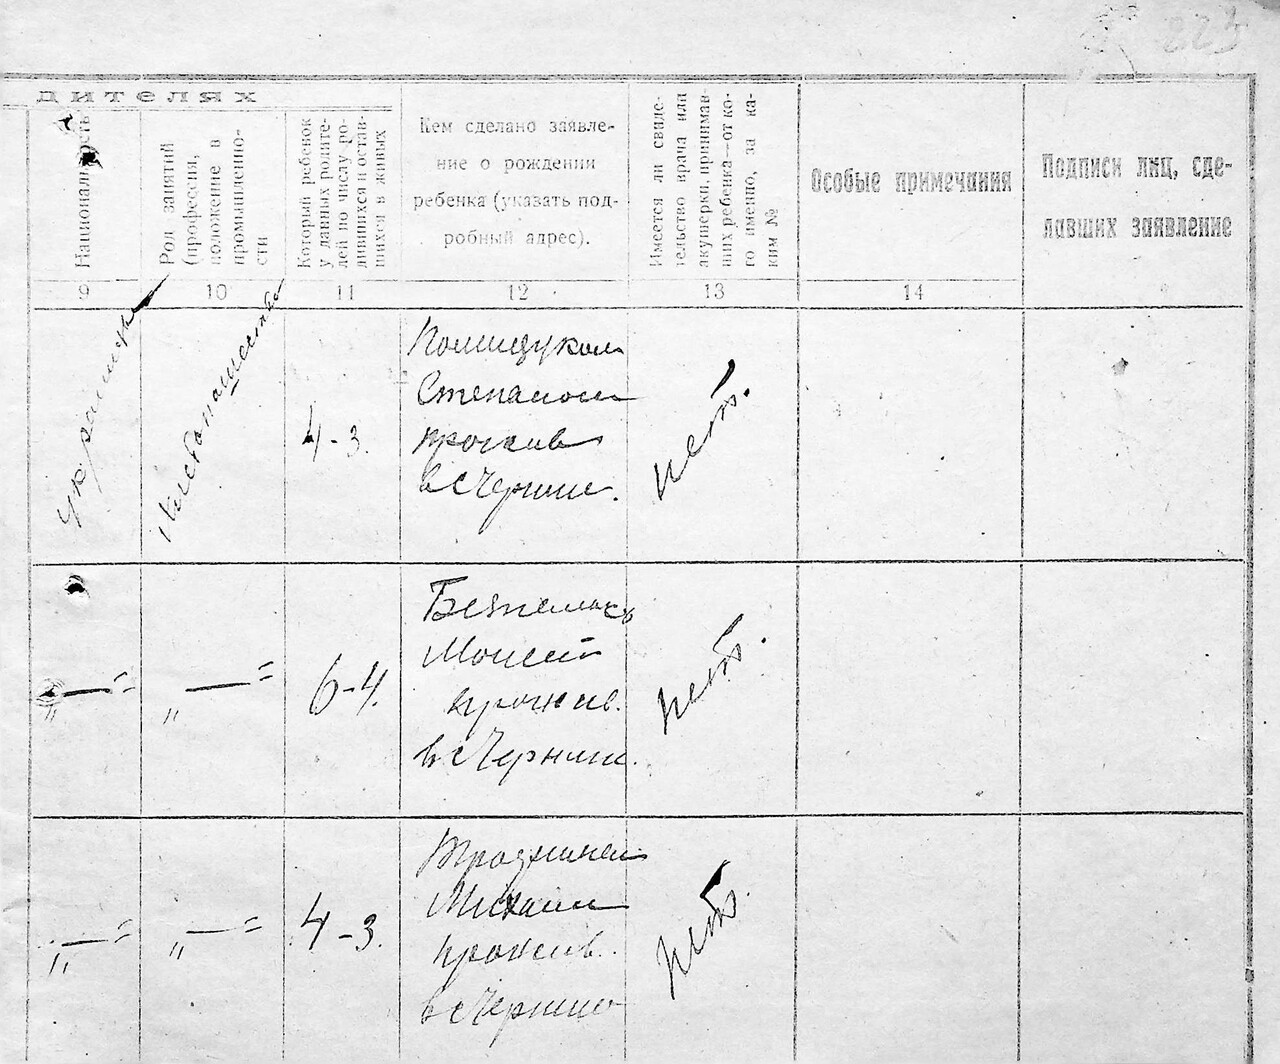 223
ДИТЕЛЯХ
Национальность
Род занятий
(профессия,
положение в
промышленно-
сти
Который ребенок
у данных родите-
лей по числу ро-
дившихся и остав-
шихся в живых
Кем сделано заявле-
ние о рождении
ребенка (указать под-
робный адрес).
Имеется ли свиде-
тельство врача или
акушерки, принимав-
ших ребенка—от ко-
го именно, за ка-
ким №
Особые примечания
Подписи лиц, сде-
лавших заявление
9
10
11
12
13
14
4-3.
Полищуком
Степаном
в с Чернин.
нет.
„ — =
„ — =
6-4.
прожив.
в с Чернин.
нет.
„ — =
„ — =
4-3.
Михаил
прожив.
в с Чернин
нет.